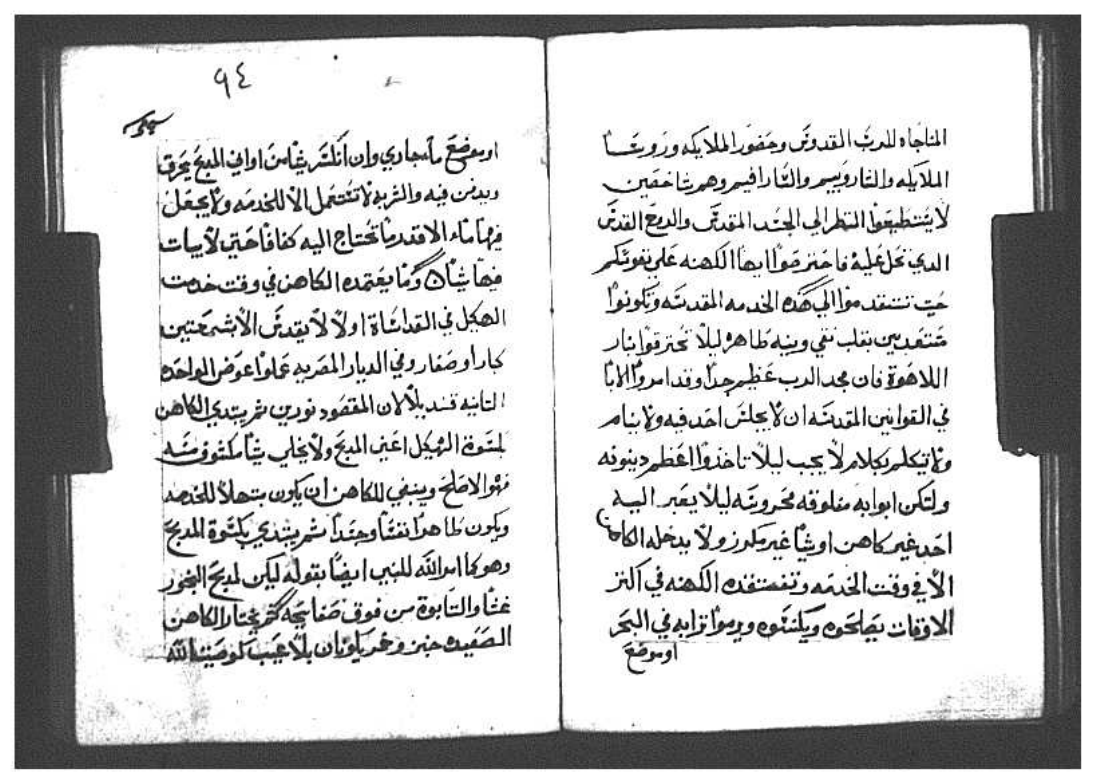 المناجاه للرب القدوس وحضور الملايكه وروسا
الملايكه والشاروبيم والسارافيم وهم شاخصين
لا يستطيعوا النظر الي الجسد المقدس والدم القدس
الذي تحل عليه فاحترصوا ايها الكهنه علي نفوسكم
حين تتقدموا الي هذه الخدمه المقدسه وتكونوا
مستعدين بقلب نقي ونيه طاهره ليلا تحترقوا بنار
اللاهوة فان مجد الرب عظيم جدا وقد امروا الابا
في القوانين المقدسه ان لا يجلس احد فيه ولا ينام
ولا تيكلم بكلام لا يجب ليلا تاخذوا اعظم دينونه
ولتكن ابوابه مغلوقه محروسه ليلا يعبر اليه
احد غير كاهن او شماس غير مكرز ولا يدخله الكاهن
الا في وقت الخدمه وتفتقده الكهنه في اكثر
الاوقات يصلحوه ويكنسوه ويرموا ترابه في البحر
او موضع
٩٤
او موضع ما جاري وان انكسر شيا من اواني المدبح يحرق
ويدفن فيه والشربه لا تستعمل الا للخدمه ولا يجعل
فيها ماء الا قدر ما تحتاج اليه كفافا حتي لا يبات
فيها شيا وما يعتمده الكاهن في وقت خدمت
الهيكل في القداساة اولا لا يقدس الا بشمعتين
كبار او صغار وفي الديار المصريه عملوا عوض الواحده
التانيه قنديلا لان المقصود نورين ثم يبتدي الكاهن
لكسوة الهيكل اعني المدبح ولا يخلي شيا مكشوف منه
فهو الاصلح وينبغي للكاهن ان يكون متهلا للخدمه
ويكون طاهرا نفسا وجسدا ثم يبتدي بكسوة المدبح
وهو كما امر الله للنبي ايضا بقوله ليكن لمدبح البخور
غشا والتابوة من فوق صفايحه ثم يختار الكاهن
الصعيده خبز وخمر يكونان بلا عيب لوصية الله